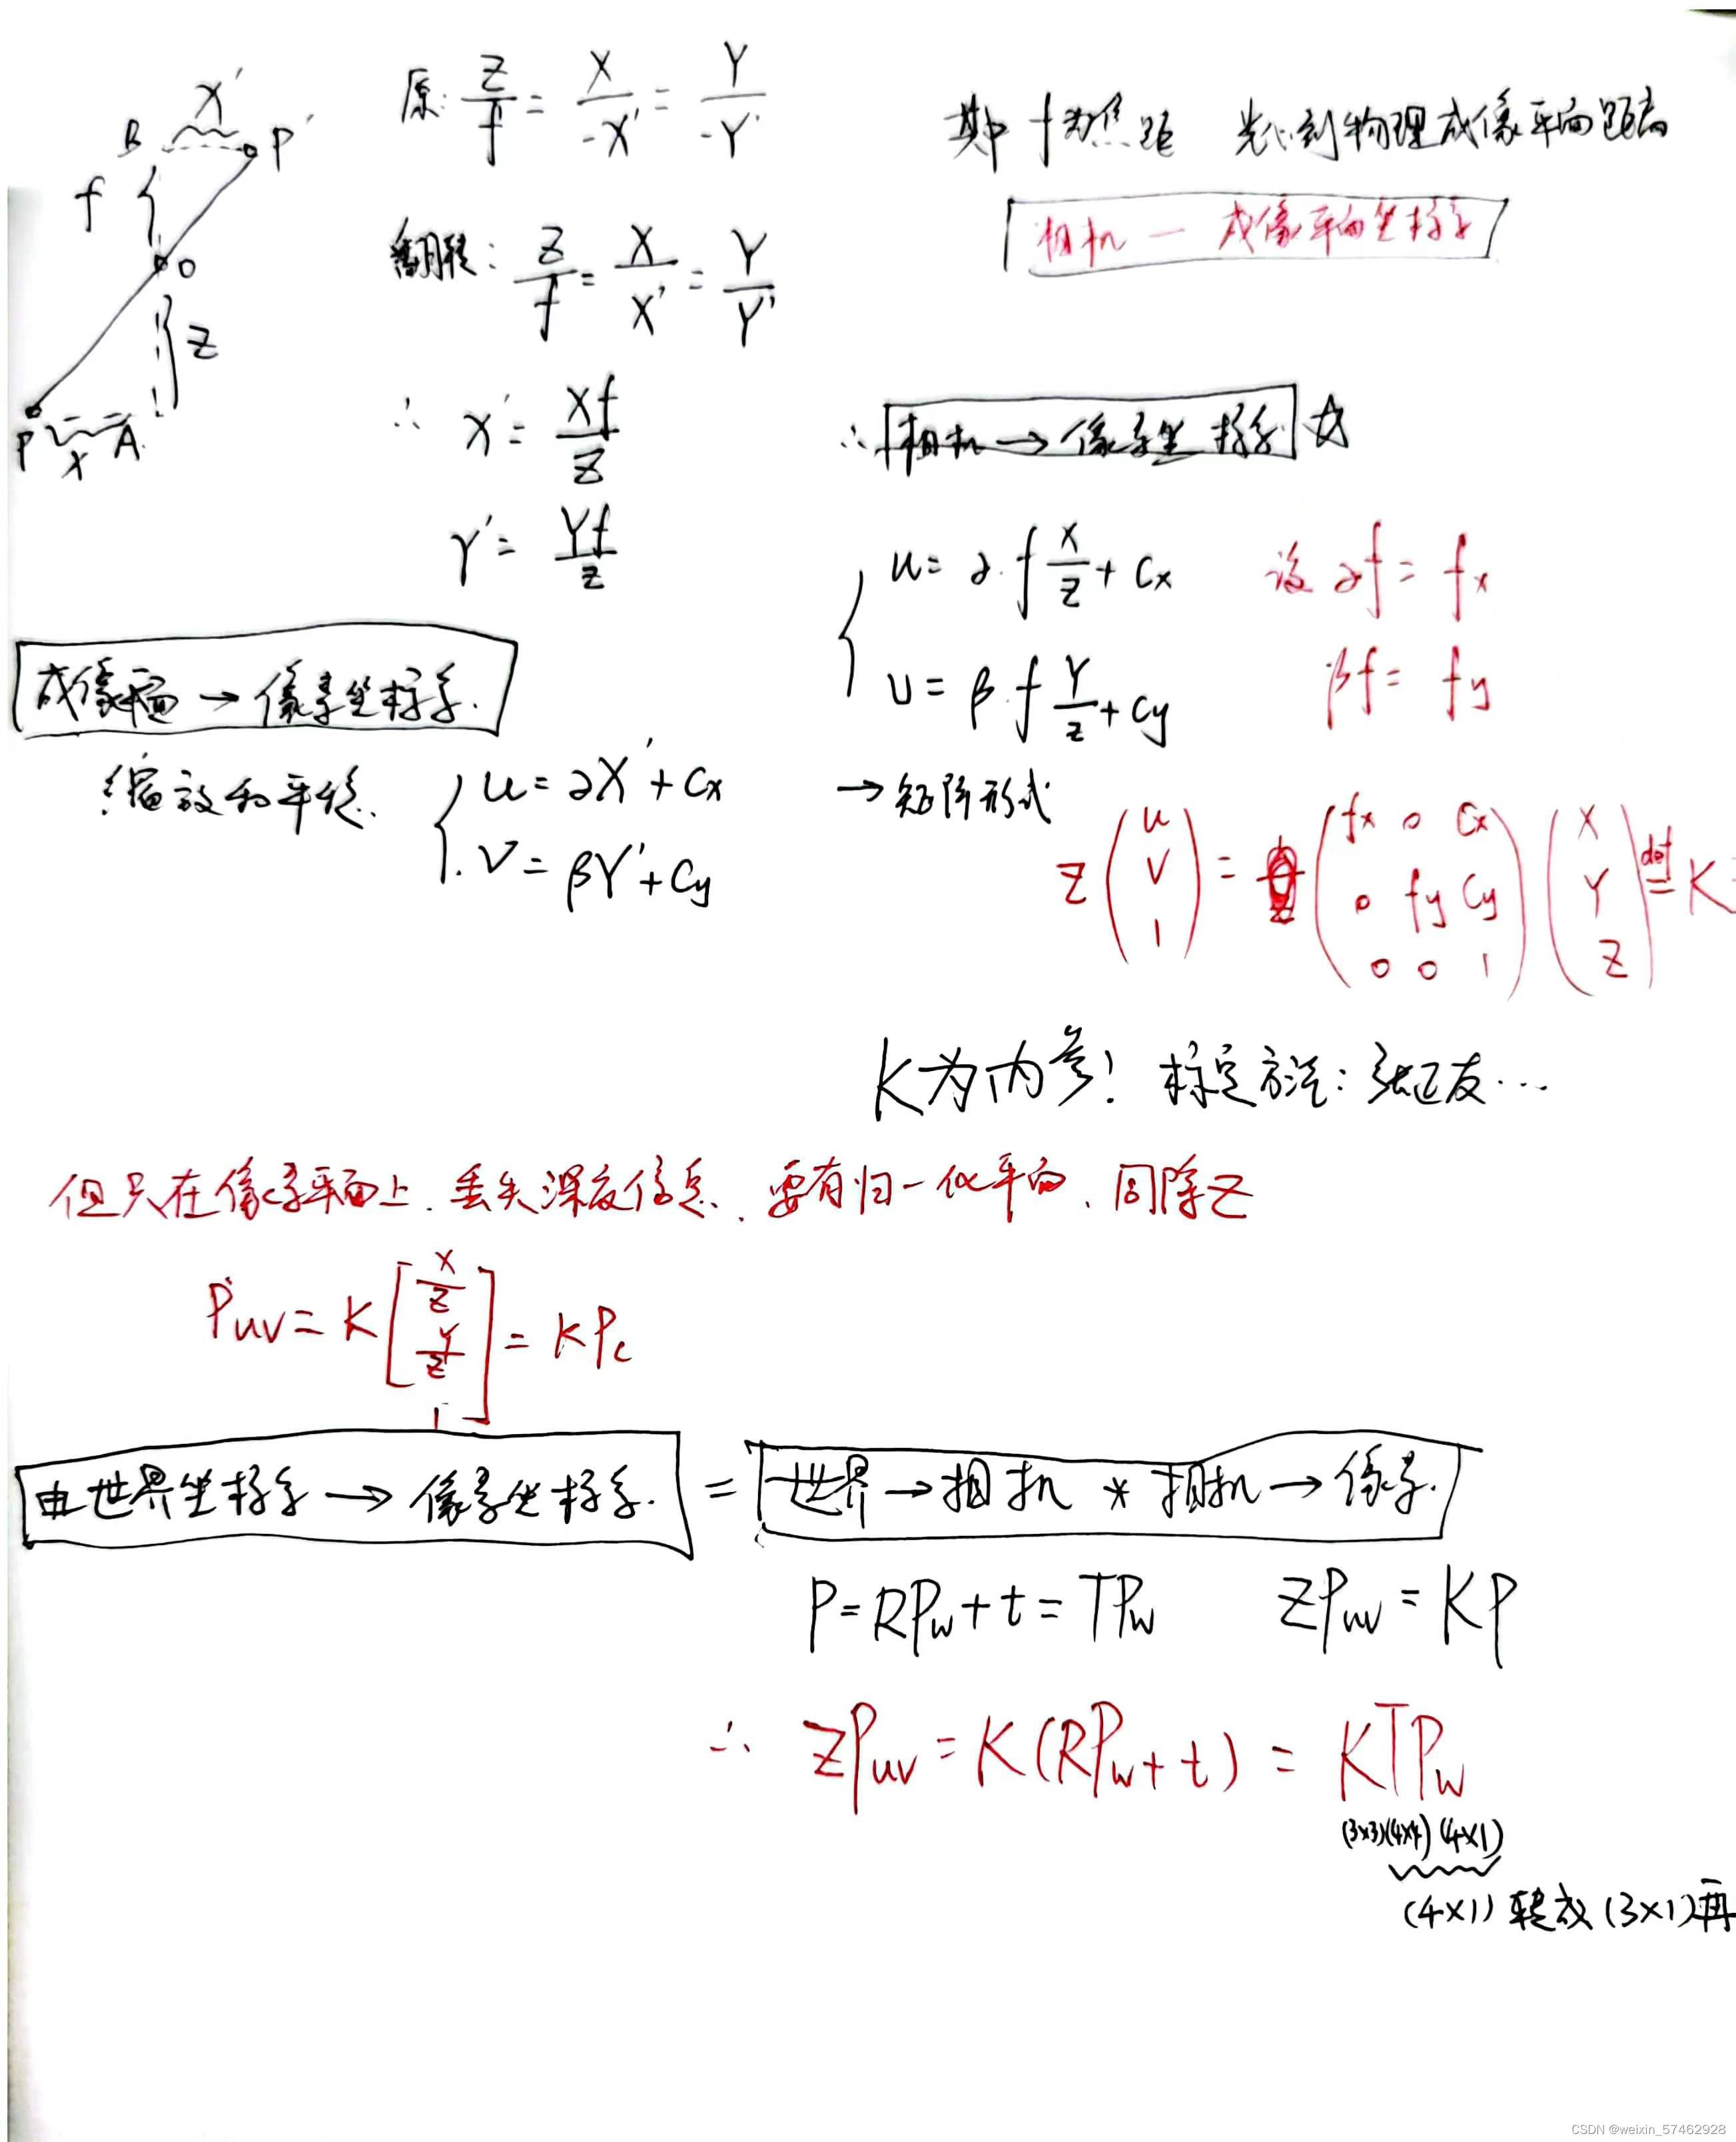 X'
B P'
f
O
Z
P A
X
原: Z/f = X/-X' = Y/-Y'
其中 f为焦距 光心到物理成像平面距离
相机 — 成像平面坐标系
翻转: Z/f = X/X' = Y/Y'
∴ X' = Xf/Z
Y' = Yf/Z
∴ 相机 → 像素坐标系 ☆
u = α·f X/Z + Cx 设 αf = fx
υ = β·f Y/Z + Cy βf = fy
成像平面 → 像素坐标系.
缩放和平移.
u = αX' + Cx
V = βY' + Cy
→ 矩阵形式
Z (u V 1) = (fx 0 Cx
0 fy Cy
0 0 1) (X Y Z) def= K
K为内参! 标定方法: 张正友…
但只在像素平面上. 丢失深度信息. 要有归一化平面. 同除Z
Puv = K [X/Z Y/Z 1] = KPc
由世界坐标系 → 像素坐标系. = 世界 → 相机 * 相机 → 像素.
P = RPw + t = TPw ZPuv = KP
∴ ZPuv = K(RPw + t) = KTPw
(3×3)(4×4)(4×1)
(4×1) 转成 (3×1)再
CSDN @weixin_57462928